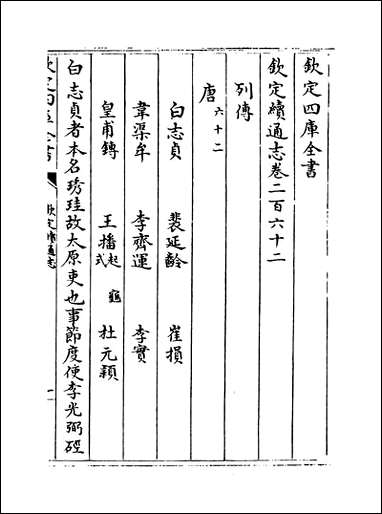 欽定四庫全書
欽定續通志卷二百六十二
列傳
唐六十二
白志貞　裴延齡　崔損
韋渠牟　李齊運　李實
皇甫鏄　王播起式龜　杜元穎
白志貞者本名琇珪故太原吏也事節度使李光弼硜
欽定四庫全書　欽定續通志　一